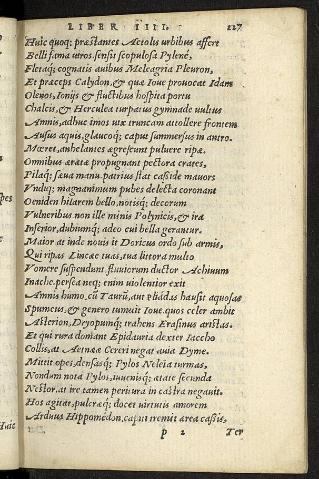 LIBER IIII. 227
Huic quoq; præstantes Aetolis urbibus affert
Belli fama uiros. sensit scopulosa Pylene,
Fletaq; cognatis auibus Meleagria Pleuron,
Et præceps Calydon, & quæ Ioue prouocat Idam
Olenos, Ionijs & fluctibus hospita portu
Chalcis, & Herculea turpatus gymnade uultus
Amnis, adhuc imos uix truncam attollere frontem
Ausus aquis, glaucoq; caput summersus in antro.
Mœret, anhelantes ægrescunt puluere ripæ.
Omnibus æratæ propugnant pectora crates,
Pilaq; sæua manu. patrius stat casside mauors
Undiq; magnanimum pubes delecta coronant
Oeniden hilarem bello, notisq; decorum
Vulneribus non ille minis Polynicis, & ira
Inferior, dubiumq; adeo cui bella gerantur.
Maior at inde nouis it Doricus ordo sub armis,
Qui ripas Lincæe tuas, tua littora multo
Vomere suspendunt, fluuiorum ductor Achiuum
Inache. persea neq; enim uiolentior exit
Amnis humo, cū Taurū, aut pliadas hausit aquosas
Spumeus, & genero tumuit Ioue. quos celer ambit
Asterion, Dryopumq; trahens Erasinus aristas.
Et qui rura domant Epidauria dexter Iaccho
Collis, at Aetneæ Cereri negat auia Dyme.
Mittit opes, densasq; Pylos Neleia turmas,
Nondum nota Pylos, iuuenisq; ætate secunda
Nestor, at ire tamen peritura in castra negauit.
Hos agitat, pulcræq; docet uirtutis amorem
Arduus Hippomedon, caput tremit ærea cassis,
p 2 Ter